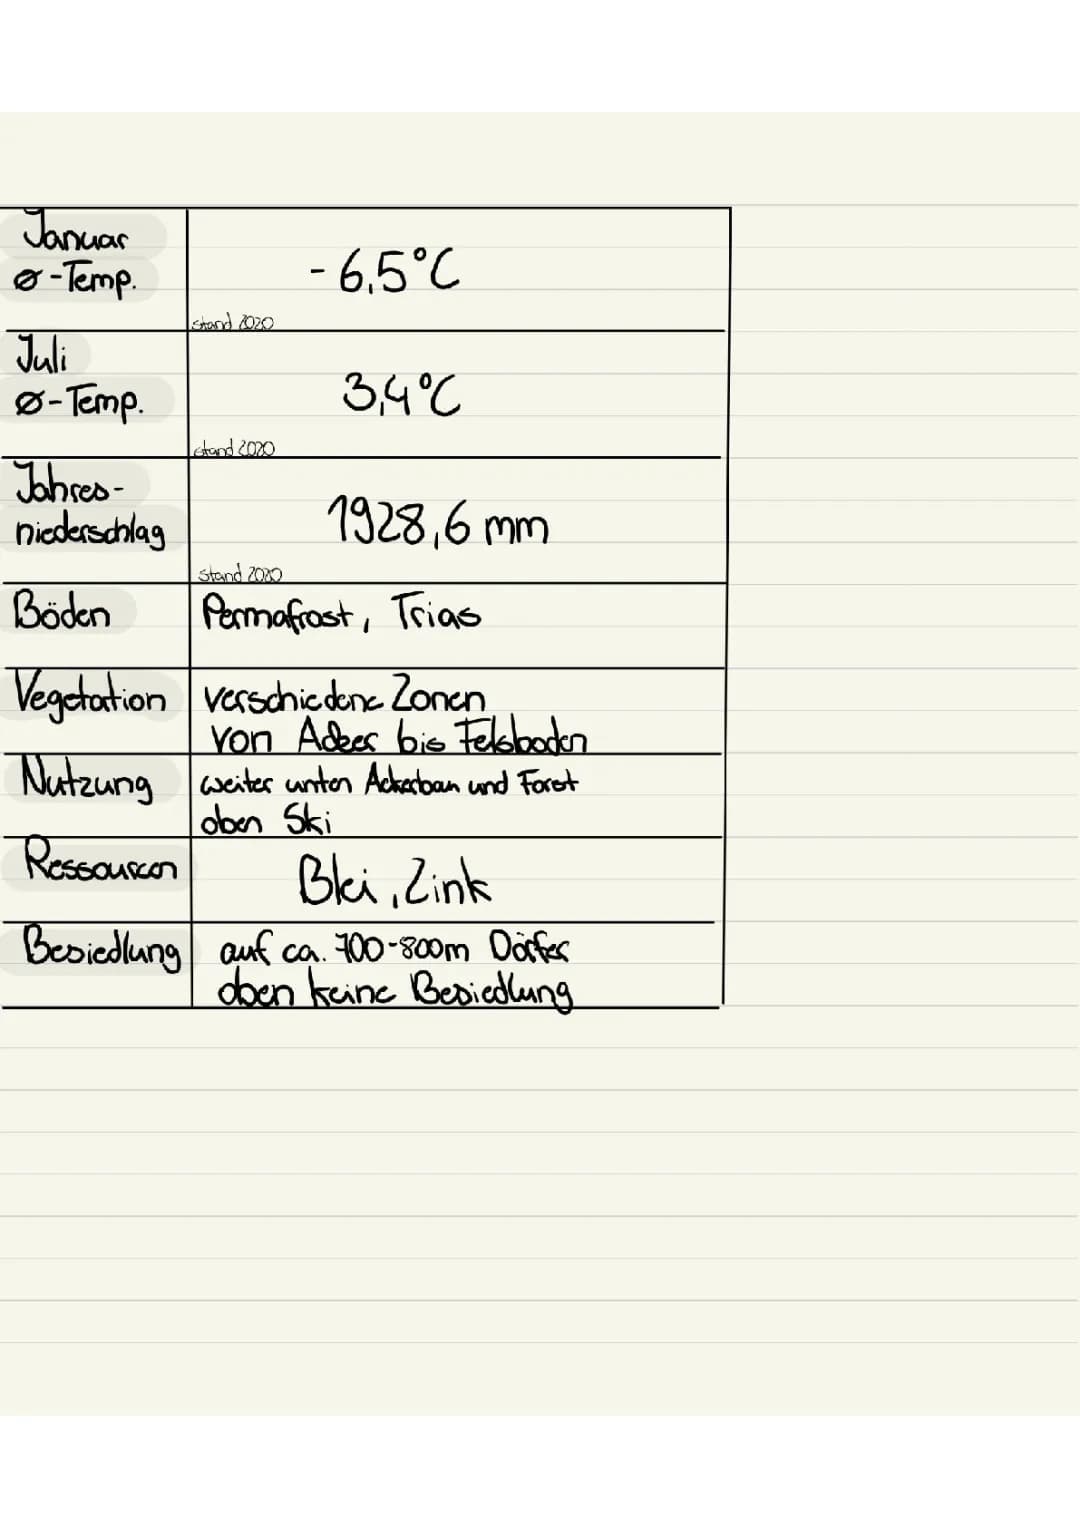 Januar
ø-Temp.
-6,5°C
Stand 2020
Juli
ø-Temp.
3,4°C
Stand 2020
Jahres-
niederschlag
1928,6 mm
Stand 2020
Böden
Permafrost, Trias
Vegetation
verschiedene Zonen
von Acker bis Felsboden
Nutzung
weiter unten Ackerbau und Forst
oben Ski
Ressourcen
Blei, Zink
Besiedlung
auf ca. 700-800m Dörfer
oben keine Besiedlung